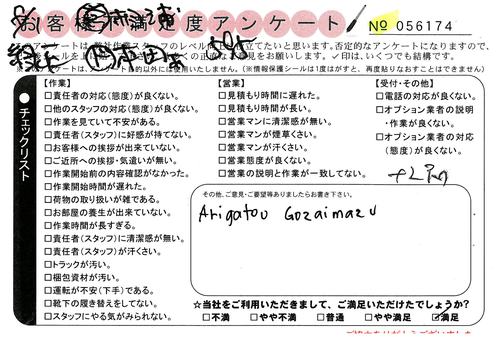 お客様不満足度アンケート
No 056174
チェックリスト
【作業】
□責任者の対応(態度)が良くない。
□他のスタッフの対応(態度)が良くない。
□作業を見ていて不安がある。
□責任者(スタッフ)に好感が持てない。
□お客様への挨拶が出来ていない。
□ご近所への挨拶・気遣いが無い。
□作業開始前の内容確認がなかった。
□作業開始時間が遅れた。
□荷物の取り扱いが雑である。
□お部屋の養生が出来ていない。
□作業時間が長すぎる。
□責任者(スタッフ)に清潔感が無い。
□責任者(スタッフ)が汗くさい。
□トラックが汚い。
□梱包資材が汚い。
□運転が不安(下手)である。
□靴下の履き替えをしてない。
□スタッフにやる気がみられない。
【営業】
□見積もり時間に遅れた。
□見積もり時間が長い。
□営業マンに清潔感が無い。
□営業マンが煙草くさい。
□営業マンが汗くさい。
□営業態度が良くない。
□営業の説明と作業が一致してない。
【受付・その他】
□電話の対応が良くない。
□オプション業者の説明
・作業が良くない。
□オプション業者の対応
(態度)が良くない。
その他、ご意見・ご要望等ありましたらお書き下さい。
Arigatou Gozaimazu
☆当社をご利用いただきまして、ご満足いただけたでしょうか?
□不満 □やや不満 □普通 □やや満足 ☑満足